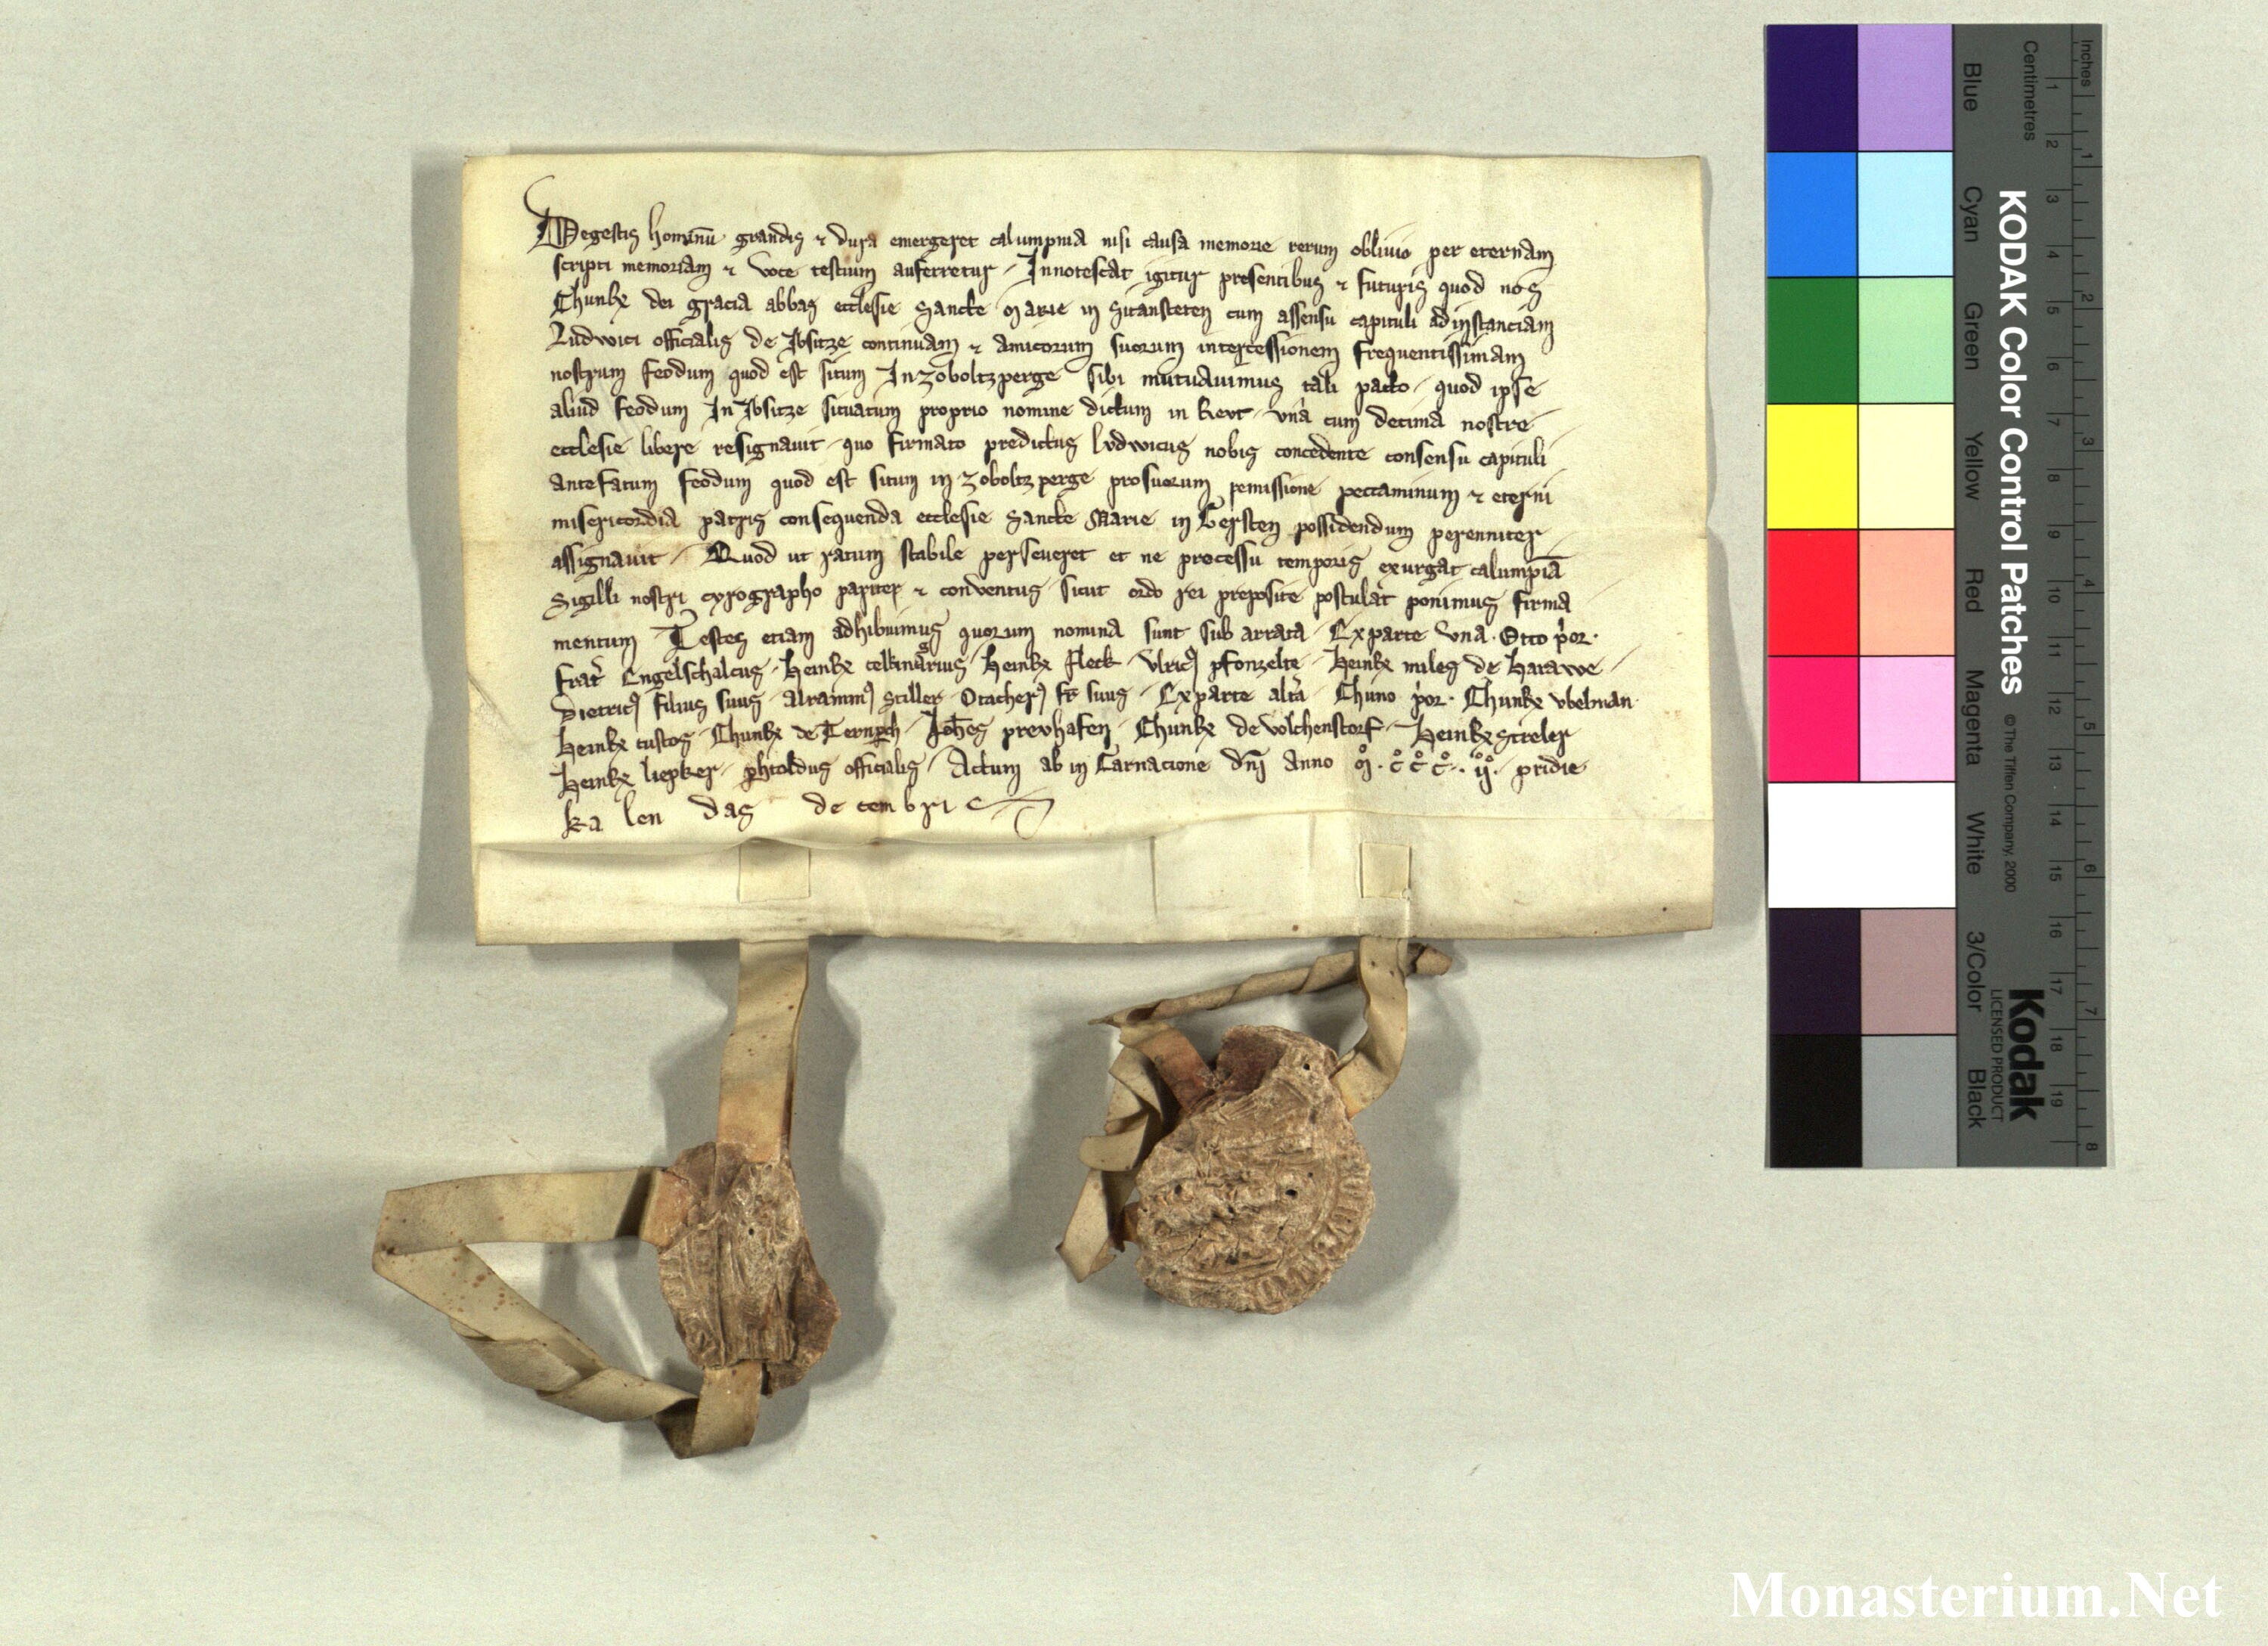 Degestis hominū grandis ⁊ dura emergeret calumpnia nisi causa memorie rerum oblivio per eternam
scripti memoriam ⁊ voce testium auferretur / Innotescat igitur presentibus ⁊ futuris quod nos
Chunƺ dei gracia abbas ecclesie Sancte Marie in Sitansteten cum assensu capituli ad instanciam
Ludwici officialis de Ibsitze continuam ⁊ amicorum suorum intercessionem frequentissimam
nostrum feodum quod est situm In zoboltzperge sibi mutuavimus tali pacto / quod ipse
aliud feodum In Ibsitze situatum proprio nomine dictum in Revt / vna cum decima nostre
ecclesie libere resignauit / quo firmato predictus lvdwicus nobis concedente consensu capituli
antefatum feodum quod est situm in zoboltzperge prosuorum remissione peccaminum ⁊ eterni
misericordia patris consequenda ecclesie Sancte Marie in Gersten possidendum perenniter
assignauit / Quod ut ratum stabile perseueret et ne processu temporis exurgat calumpiā
Sigilli nostri cyrographo pariter ⁊ conventus sicut ordo rei preposite postulat ponimus firma
mentum / Testes etiam adhibuimus quorum nomina sunt sub arrata / Ex parte vna · Otto p'or ·
frat' Engelschalcus / Heinƺ cellinarius / Heinƺ fleck / Vlric' pfonzelte / Heinƺ miles de Harawe /
Dietric' filius suus / Alramm' Stiller / Otacher' fr̄ suus / Ex parte alt'a / Chuno p'or · Chunƺ vbelman
Heinƺ custos / Chunƺ de Ternpch / Joh̄es prevhafen / Chunƺ de volchenstorf / Heinƺ streler
Heinƺ liepker / phtoldus officialis / Actum ab in Carnacione dn̄j Anno M · C C C · · ij · pridie
ka len das de cem bri s
KODAK Color Control Patches
© The Tiffen Company, 2000
Kodak
LICENSED PRODUCT
Inches
Centimetres
1 2 3 4 5 6 7 8
1 2 3 4 5 6 7 8 9 10 11 12 13 14 15 16 17 18 19
Blue
Cyan
Green
Yellow
Red
Magenta
White
3/Color
Black
Monasterium.Net